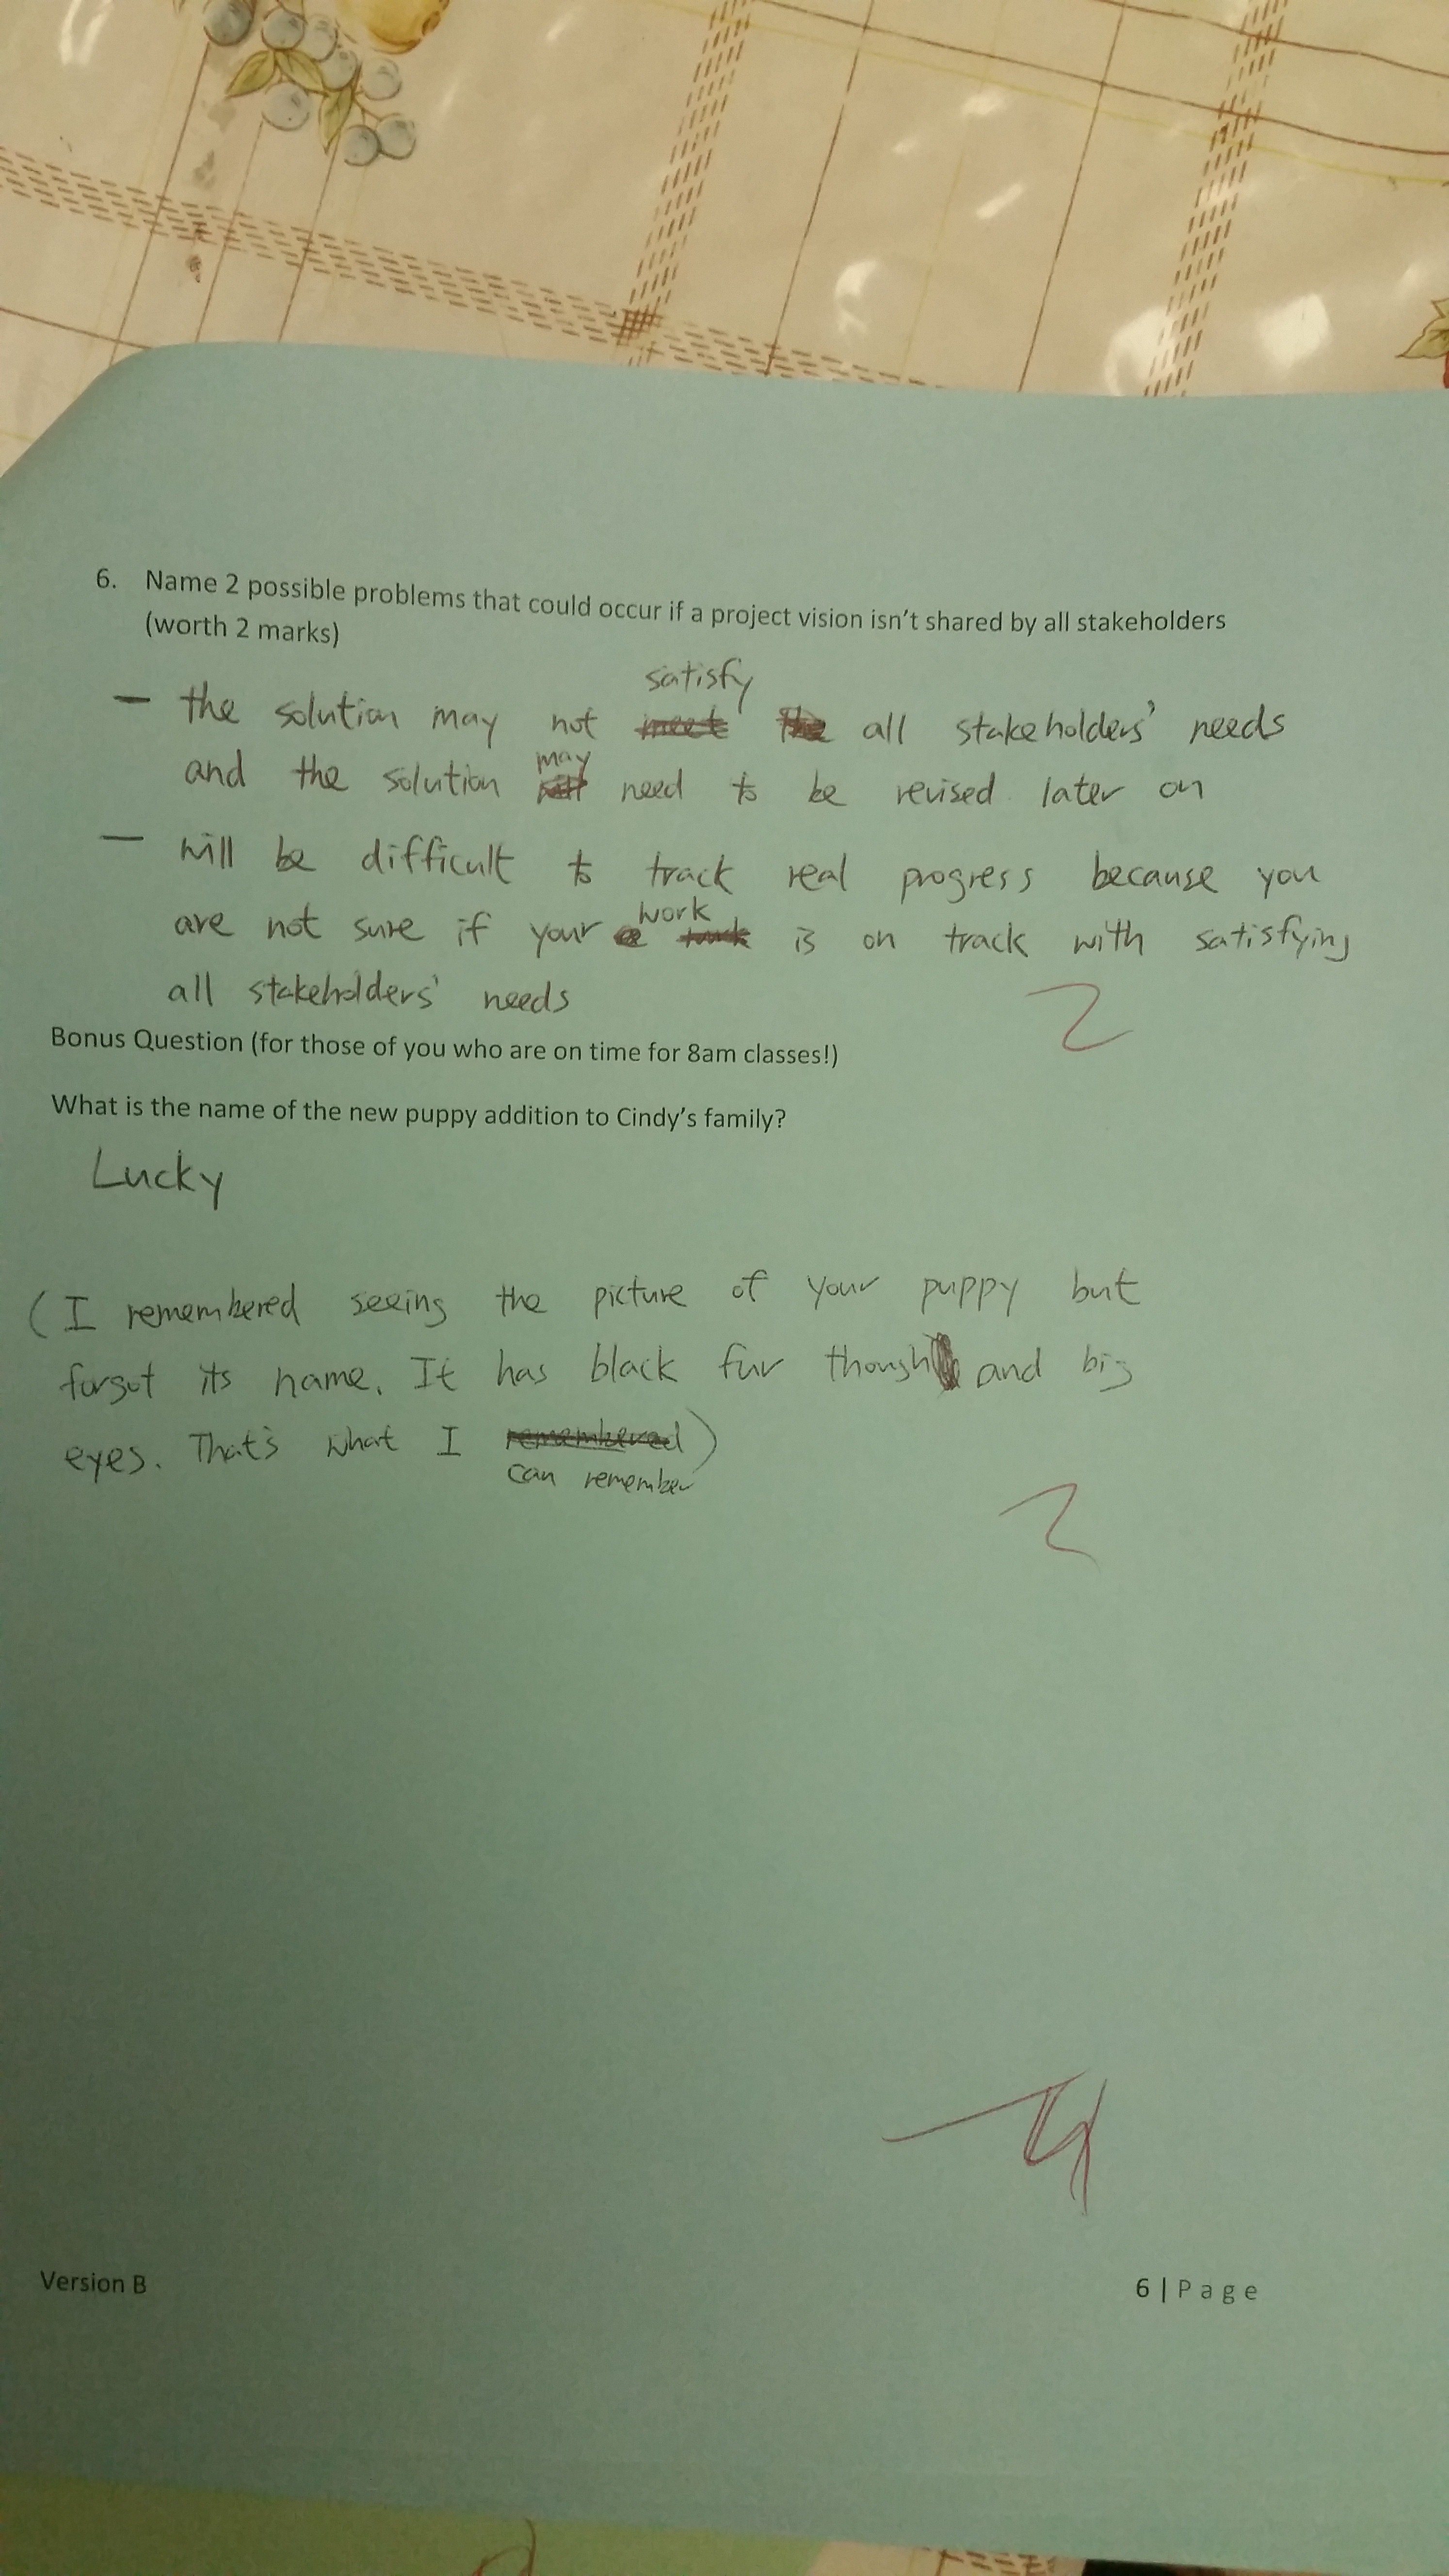 6. Name 2 possible problems that could occur if a project vision isn't shared by all stakeholders
(worth 2 marks)
satisfy
— the solution may not meet the all stakeholders' needs
may
and the solution will need to be revised later on
— will be difficult to track real progress because you
work
are not sure if your is on track with satisfying
all stakeholders' needs
2
Bonus Question (for those of you who are on time for 8am classes!)
What is the name of the new puppy addition to Cindy's family?
Lucky
(I remembered seeing the picture of your puppy but
forgot its name. It has black fur though and big
eyes. That's what I remembered)
can remember
2
4
Version B
6 | Page